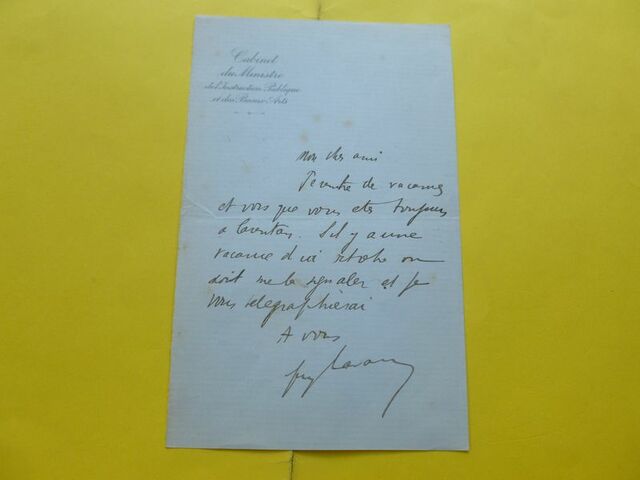 Cabinet
du Ministre
de l'Instruction Publique
et des Beaux-Arts
Mon cher ami
Je rentre de vacances
et vois que vous etes toujours
a . S'il y a une
vacance d'ici on
doit me le signaler et je
vous telegraphierai
A vous